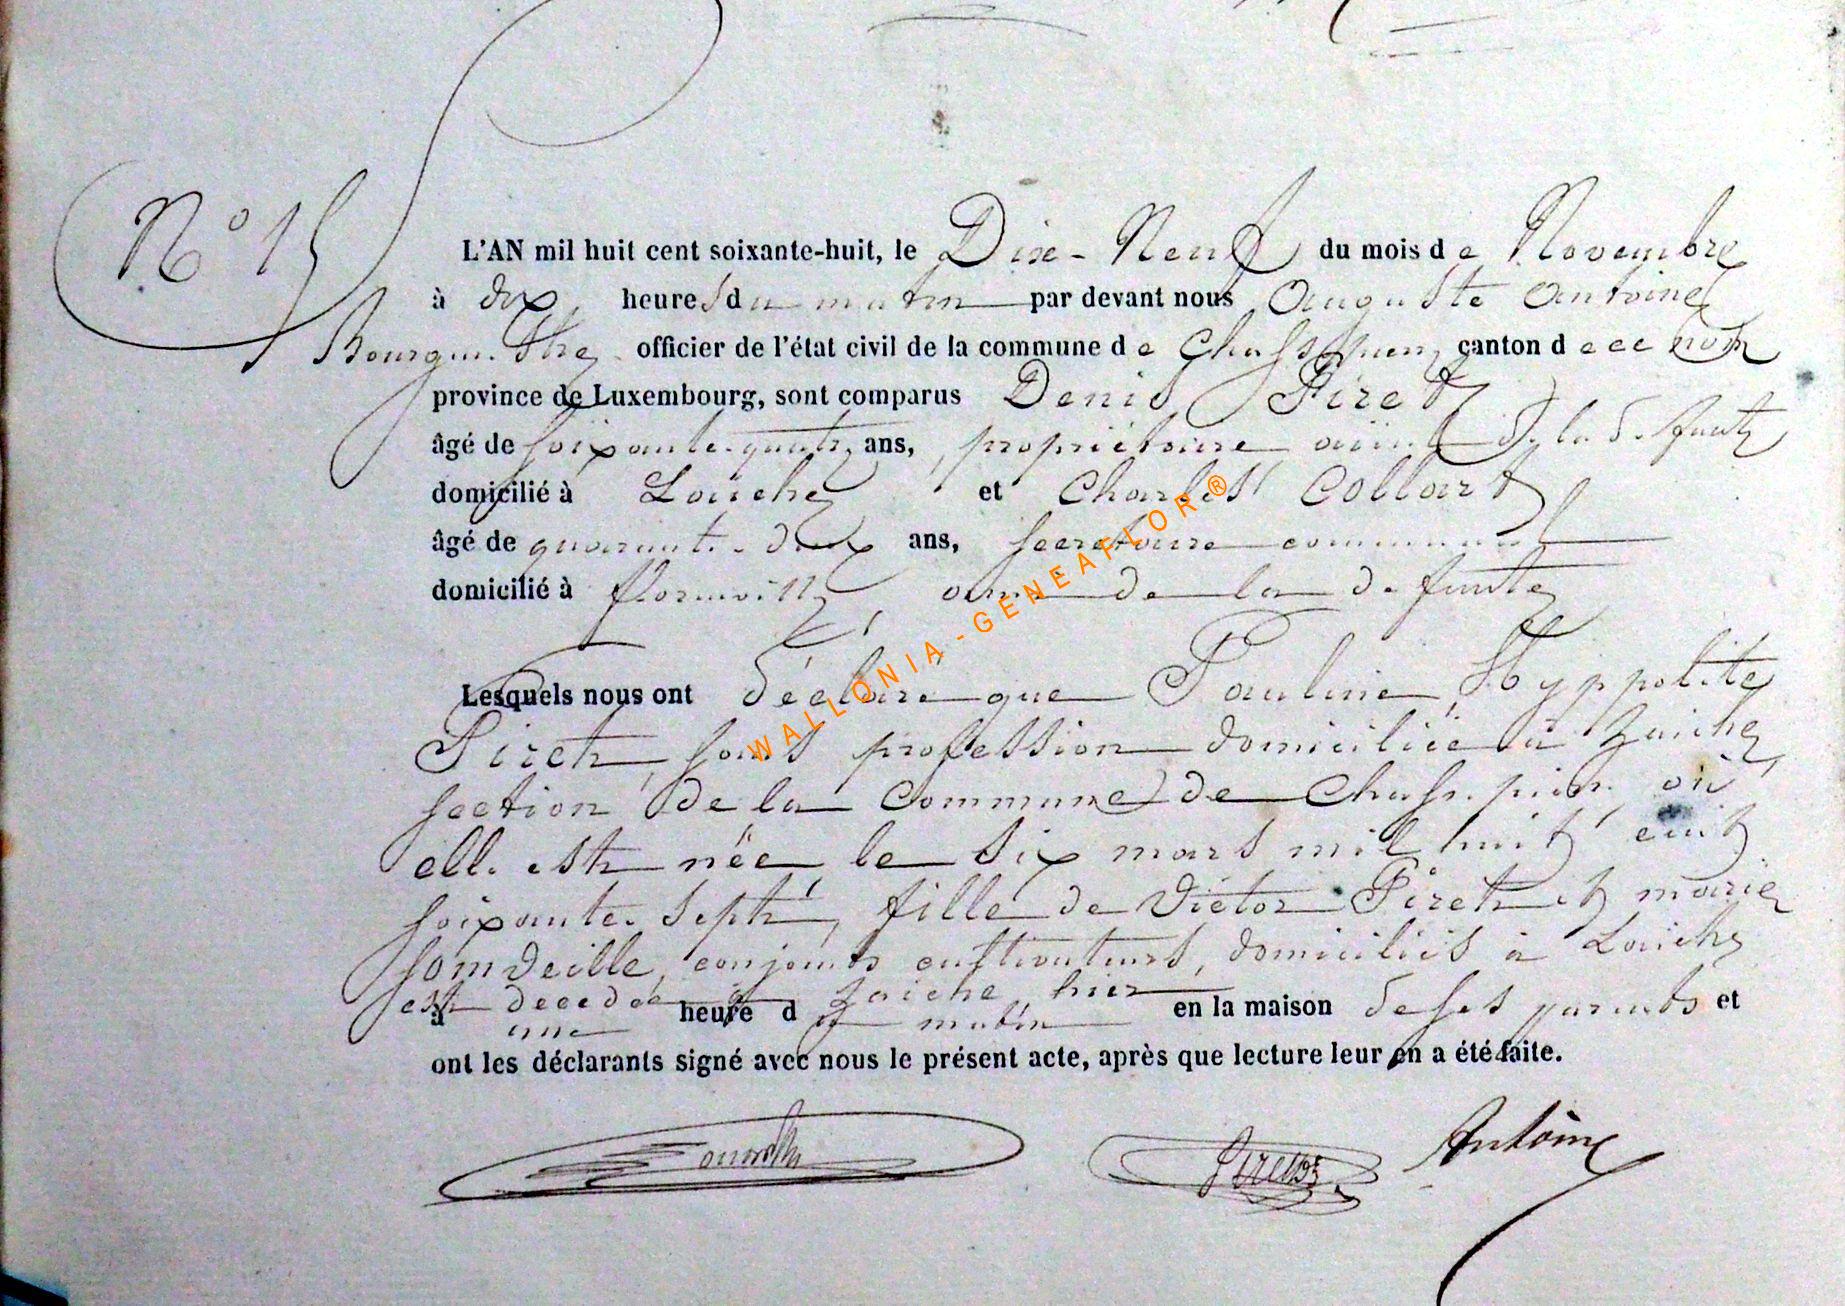 N° 15
L'AN mil huit cent soixante-huit, le Dix-Neuf du mois de Novembre
à dix heures du matin par devant nous Auguste Antoine
Bourgmestre officier de l'état civil de la commune de Chassepierre canton de
province de Luxembourg, sont comparus Denis Piret
âgé de soixante-quatre ans, propriétaire aïeul de la défunte
domicilié à Laiche et Charles Collart
âgé de quarante-deux ans, secretaire communal
domicilié à florenville, ami de la defunte
Lesquels nous ont déclaré que Pauline Hyppolite
Piret, sans profession domiciliée à Laiche
section de la Commune de Chassepierre où
elle est née le six mars mil huit cent
soixante-sept, fille de Victor Piret et marie
Somdeille, conjoints cultivateurs, domiciliés à Laiche
est decedée à Laiche hier
à une heure du matin en la maison de ses parents et
ont les déclarants signé avec nous le présent acte, après que lecture leur en a été faite.
Piret Antoine
WALLONIA-GENEAFLOR®